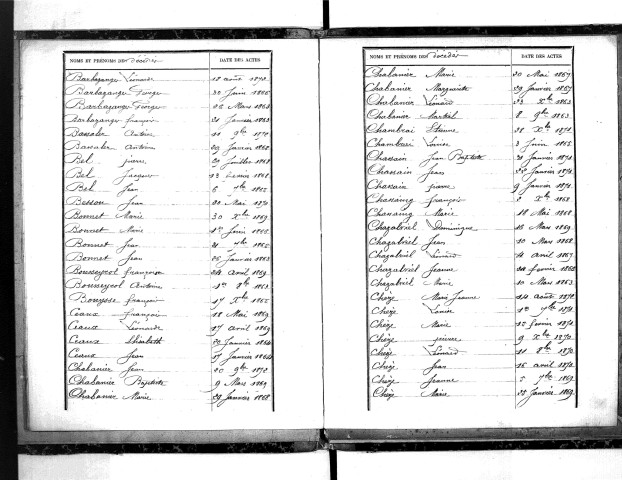 NOMS ET PRÉNOMS DES décédés DATE DES ACTES
Barbazanges Léonarde 18 août 1872
Barbazanges 30 Juin 1866
Barbazanges 26 Mars 1864
Barbazanges françois 31 Janvier 1863
Antoine 11 9bre 1872
Antoine 29 Janvier 1862
Bel pierre 29 Juillet 1868
Bel Jacques 23 Février 1868
Bel Jean 6 7bre 1862
Besson Jean 20 Mai 1870
Bonnet Marie 30 Xbre 1869
Bonnet Marie 1er Juin 1862
Bonnet Jean 21 7bre 1862
Bonnet Jean 26 Janvier 1863
Bousseyrol françoise 24 avril 1869
Bousseyrol Antoine 1er 8bre 1863
françois 17 Xbre 1865
Ceaux françois 18 Mai 1869
Ceaux Léonarde 17 avril 1869
Ceaux Elisabeth 29 Janvier 1864
Ceaux Jean 17 Janvier 1864
Chabanier Jean 9bre 1870
Chabanier Baptiste 9 Mars 1867
Chabanier Marie 29 Janvier 1868
NOMS ET PRÉNOMS DES décédés DATE DES ACTES
Chabanier Marie 20 Mai 1867
Chabanier Marguerite 29 Janvier 1867
Chabanier Léonard 23 Xbre 1863
Chabanier Martial 8 9bre 1863
Chambrai Etienne 28 Xbre 1872
Chambrai Louise 3 Juin 1866
Chassain Jean Baptiste 31 Janvier 1872
Chassain Jean 22 Janvier 1872
Chassain pierre 9 Janvier 1872
Chassaing François 2 Xbre 1868
Chassaing Marie 18 Mai 1868
Chazabriel Dominique 16 Mars 1869
Chazabriel Jean 10 Mars 1868
Chazabriel Léonard 4 avril 1867
Chazabriel Jeanne 24 février 1862
Chazabriel Marie 10 Mars 1863
Chèze Marie Jeanne 24 août 1872
Chèze Louise 1er 7bre 1872
Chèze Marie février 1872
Chèze pierre 9 Xbre 1870
Chèze Léonard 11 8bre 1870
Chèze Jean 26 avril 1872
Chèze Jeanne 7bre 1869
Chèze Marie 22 Janvier 1869